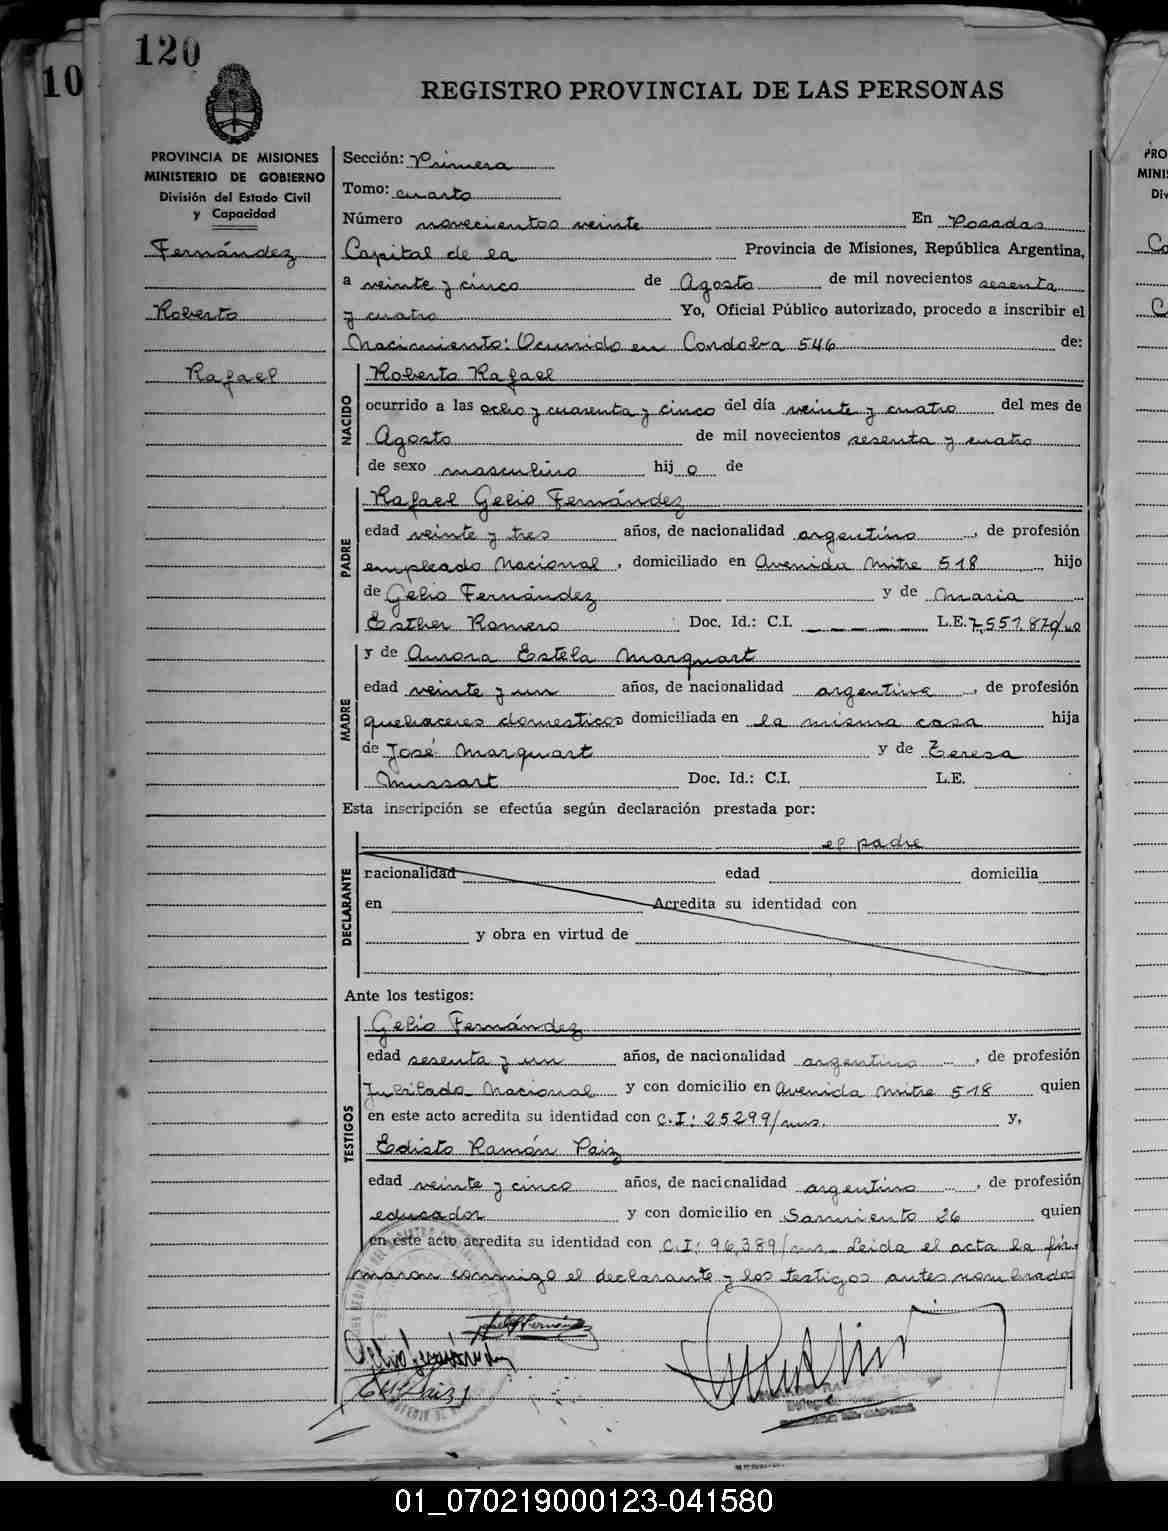 120
10
REGISTRO PROVINCIAL DE LAS PERSONAS
PROVINCIA DE MISIONES
MINISTERIO DE GOBIERNO
División del Estado Civil
y Capacidad
Fernández
Roberto
Rafael
Sección: Primera
Tomo: cuarto
Número novecientos veinte En Posadas
Capital de la Provincia de Misiones, República Argentina,
a veinte y cinco de Agosto de mil novecientos sesenta
y cuatro Yo, Oficial Público autorizado, procedo a inscribir el
Nacimiento: Ocurrido en Cordoba 546 de:
NACIDO
Roberto Rafael
ocurrido a las ocho y cuarenta y cinco del día veinte y cuatro del mes de
Agosto de mil novecientos sesenta y cuatro
de sexo masculino hij o de
PADRE
Rafael Gelio Fernández
edad veinte y tres años, de nacionalidad argentino, de profesión
empleado Nacional, domiciliado en Avenida Mitre 518 hijo
de Gelio Fernández y de Maria
Esther Romero Doc. Id.: C.I. L.E. 7,551,870
MADRE
y de Aurora Estela Marquart
edad veinte y un años, de nacionalidad argentina, de profesión
quehaceres domesticos domiciliada en la misma casa hija
de José Marquart y de Teresa
Mussart Doc. Id.: C.I. L.E.
Esta inscripción se efectúa según declaración prestada por:
el padre
DECLARANTE
nacionalidad edad domicilia
en Acredita su identidad con
y obra en virtud de
Ante los testigos:
TESTIGOS
Gelio Fernández
edad sesenta y un años, de nacionalidad argentino, de profesión
Jubilado Nacional y con domicilio en Avenida Mitre 518 quien
en este acto acredita su identidad con C.I: 25299/mns. y,
Edisto Ramón Paiz
edad veinte y cinco años, de nacionalidad argentino, de profesión
educador y con domicilio en Sarmiento 26 quien
en este acto acredita su identidad con C.I: 96,389/mns. Leida el acta la fir-
maron conmigo el declarante y los testigos antes nombrados
01_070219000123-041580